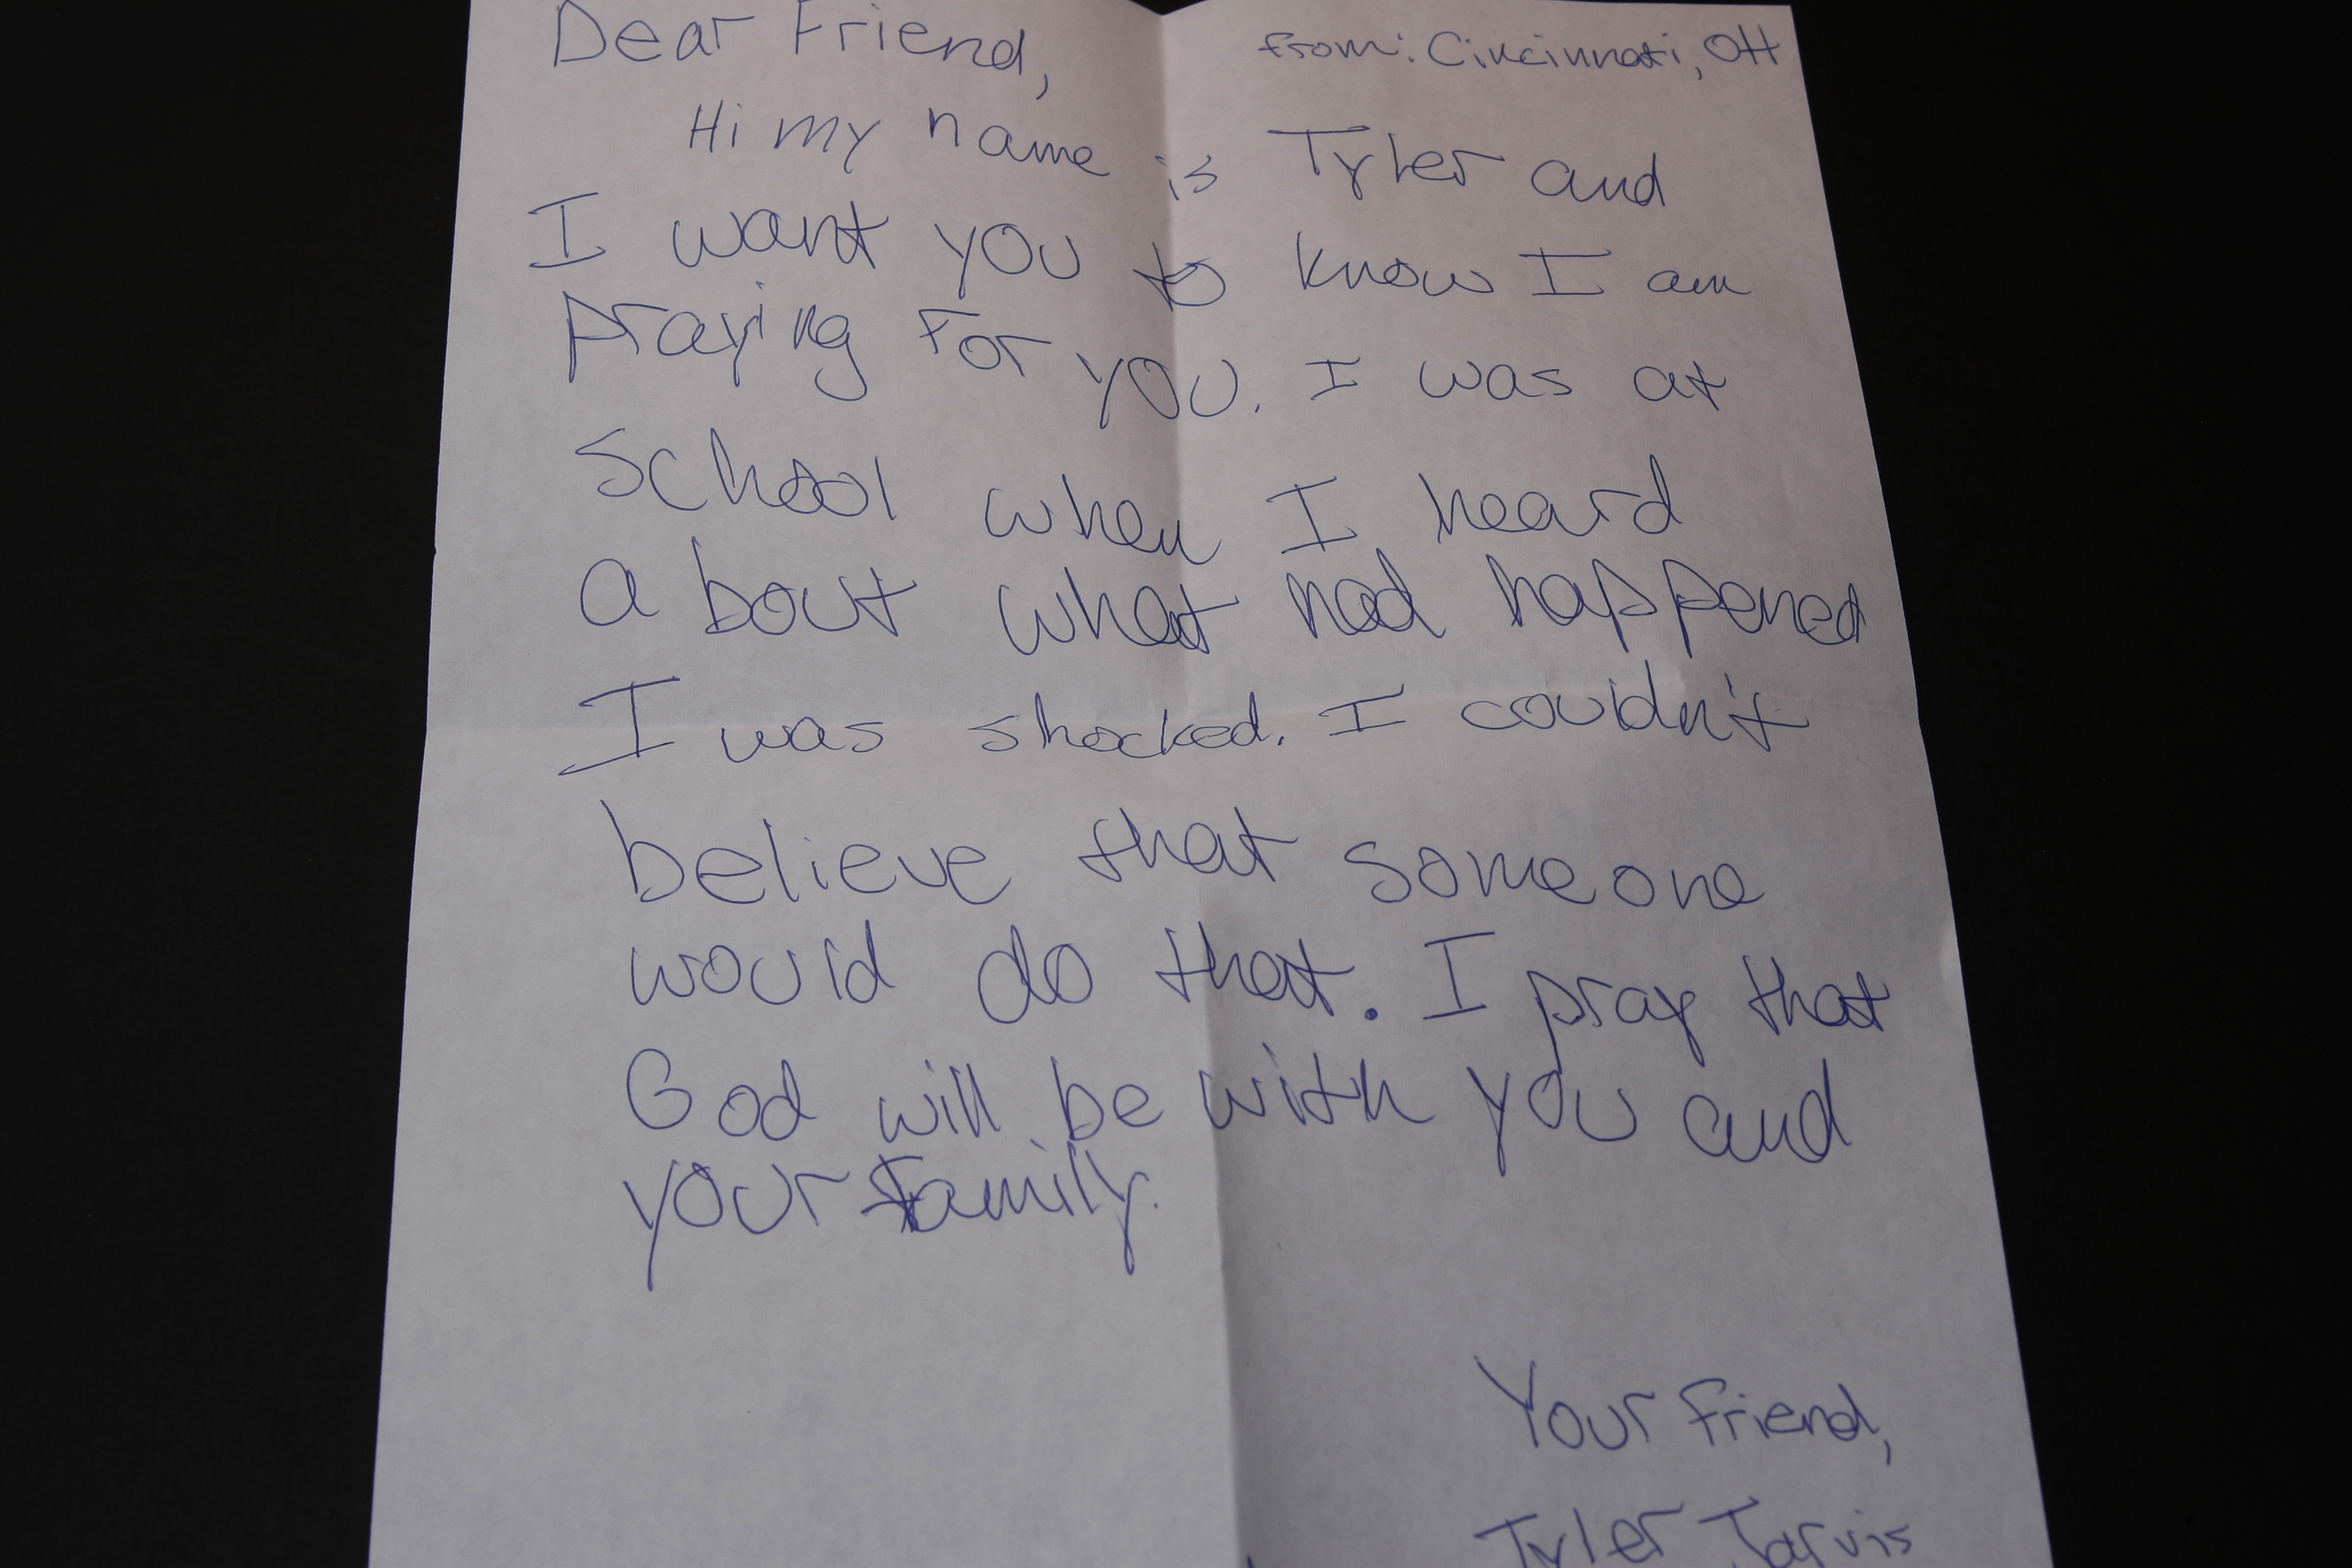 Dear Friend,
from: Cincinnati, OH
Hi my name is Tyler and
I want you to know I am
praying For you. I was at
School when I heard
about what had happened
I was shocked. I couldn't
believe that someone
would do that. I pray that
God will be with you and
your family.
Your friend,
Tyler Jarvis